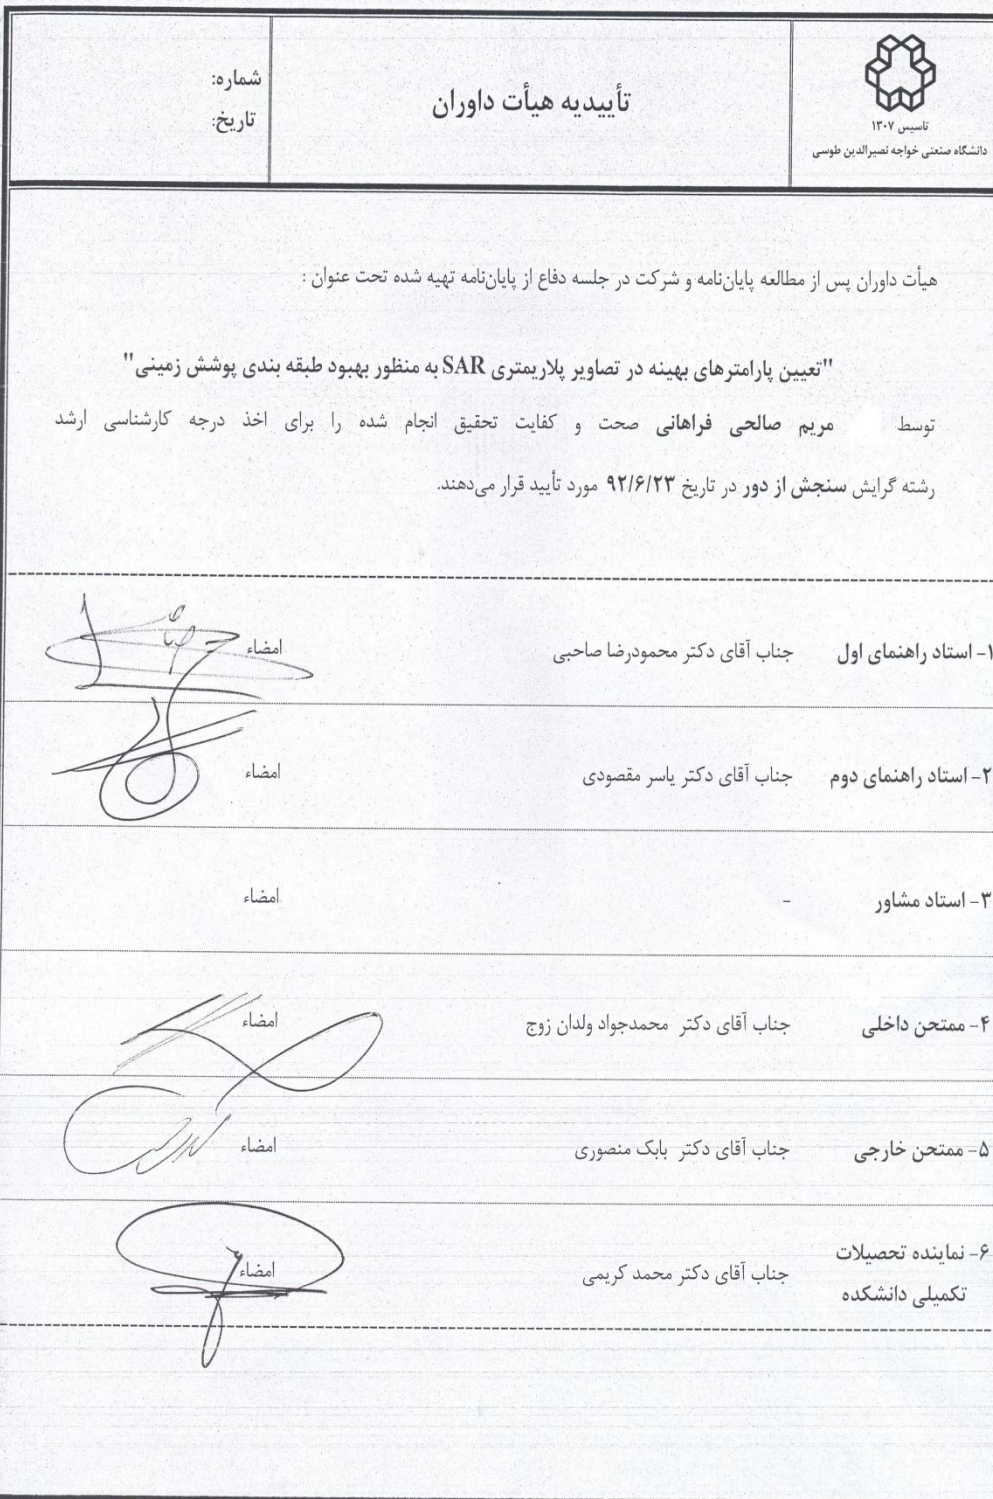 تاسیس ۱۳۰۷
دانشگاه صنعتی خواجه نصیرالدین طوسی
تأییدیه هیأت داوران
شماره:
تاریخ:
هیأت داوران پس از مطالعه پایان‌نامه و شرکت در جلسه دفاع از پایان‌نامه تهیه شده تحت عنوان :
"تعیین پارامترهای بهینه در تصاویر پلاریمتری SAR به منظور بهبود طبقه بندی پوشش زمینی"
توسط مریم صالحی فراهانی صحت و کفایت تحقیق انجام شده را برای اخذ درجه کارشناسی ارشد
رشته گرایش سنجش از دور در تاریخ ۹۲/۶/۲۳ مورد تأیید قرار می‌دهند.
۱- استاد راهنمای اول جناب آقای دکتر محمودرضا صاحبی امضاء
۲- استاد راهنمای دوم جناب آقای دکتر یاسر مقصودی امضاء
۳- استاد مشاور - امضاء
۴- ممتحن داخلی جناب آقای دکتر محمدجواد ولدان زوج امضاء
۵- ممتحن خارجی جناب آقای دکتر بابک منصوری امضاء
۶- نماینده تحصیلات
تکمیلی دانشکده جناب آقای دکتر محمد کریمی امضاء